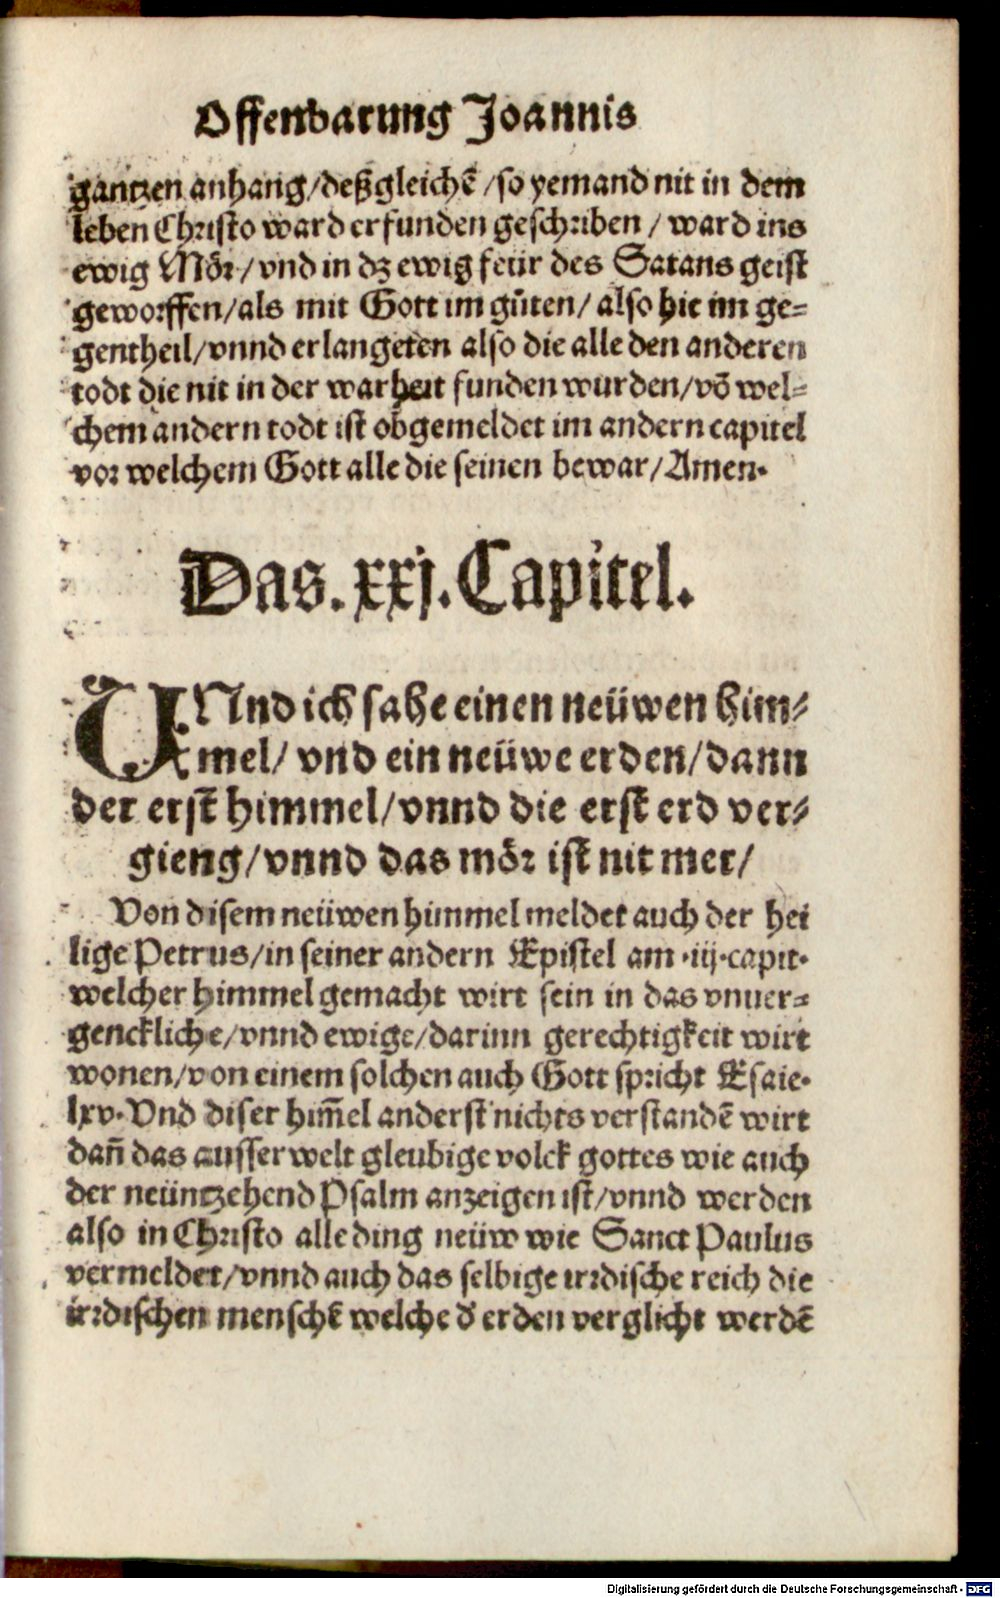 Offenbarung Joannis
gantzen anhang/deßgleichẽ/so yemand nit in dem
leben Christo ward erfunden geschriben/ ward ins
ewig Moͤr/vnd in dz ewig feür des Satans geist
geworffen/als mit Gott im guͦten/ also hie im ge-
gentheil/vnnd erlangeten also die alle den anderen
todt die nit in der warheit funden wurden/võ wel-
chem andern todt ist obgemeldet im andern capitel
vor welchem Gott alle die seinen bewar/Amen.
Das.xxj.Capitel.
VNnd ich sahe einen neüwen him-
mel/ vnd ein neüwe erden/dann
der erst himmel/vnnd die erst erd ver-
gieng/vnnd das moͤr ist nit mer/
Von disem neüwen himmel meldet auch der hei
lige Petrus/in seiner andern Epistel am .iij.capit.
welcher himmel gemacht wirt sein in das vnuer-
genckliche/vnnd ewige/darinn gerechtigkeit wirt
wonen/von einem solchen auch Gott spricht Esaie.
lxv.Vnd diser him̃el anderst nichts verstandẽ wirt
dañ das ausserwelt gleubige volck gottes wie auch
der neüntzehend Psalm anzeigen ist/vnnd werden
also in Christo alle ding neüw wie Sanct Paulus
vermeldet/vnnd auch das selbige irrdische reich die
irrdischen menschẽ welche d' erden verglicht werdẽ
Digitalisierung gefördert durch die Deutsche Forschungsgemeinschaft - DFG